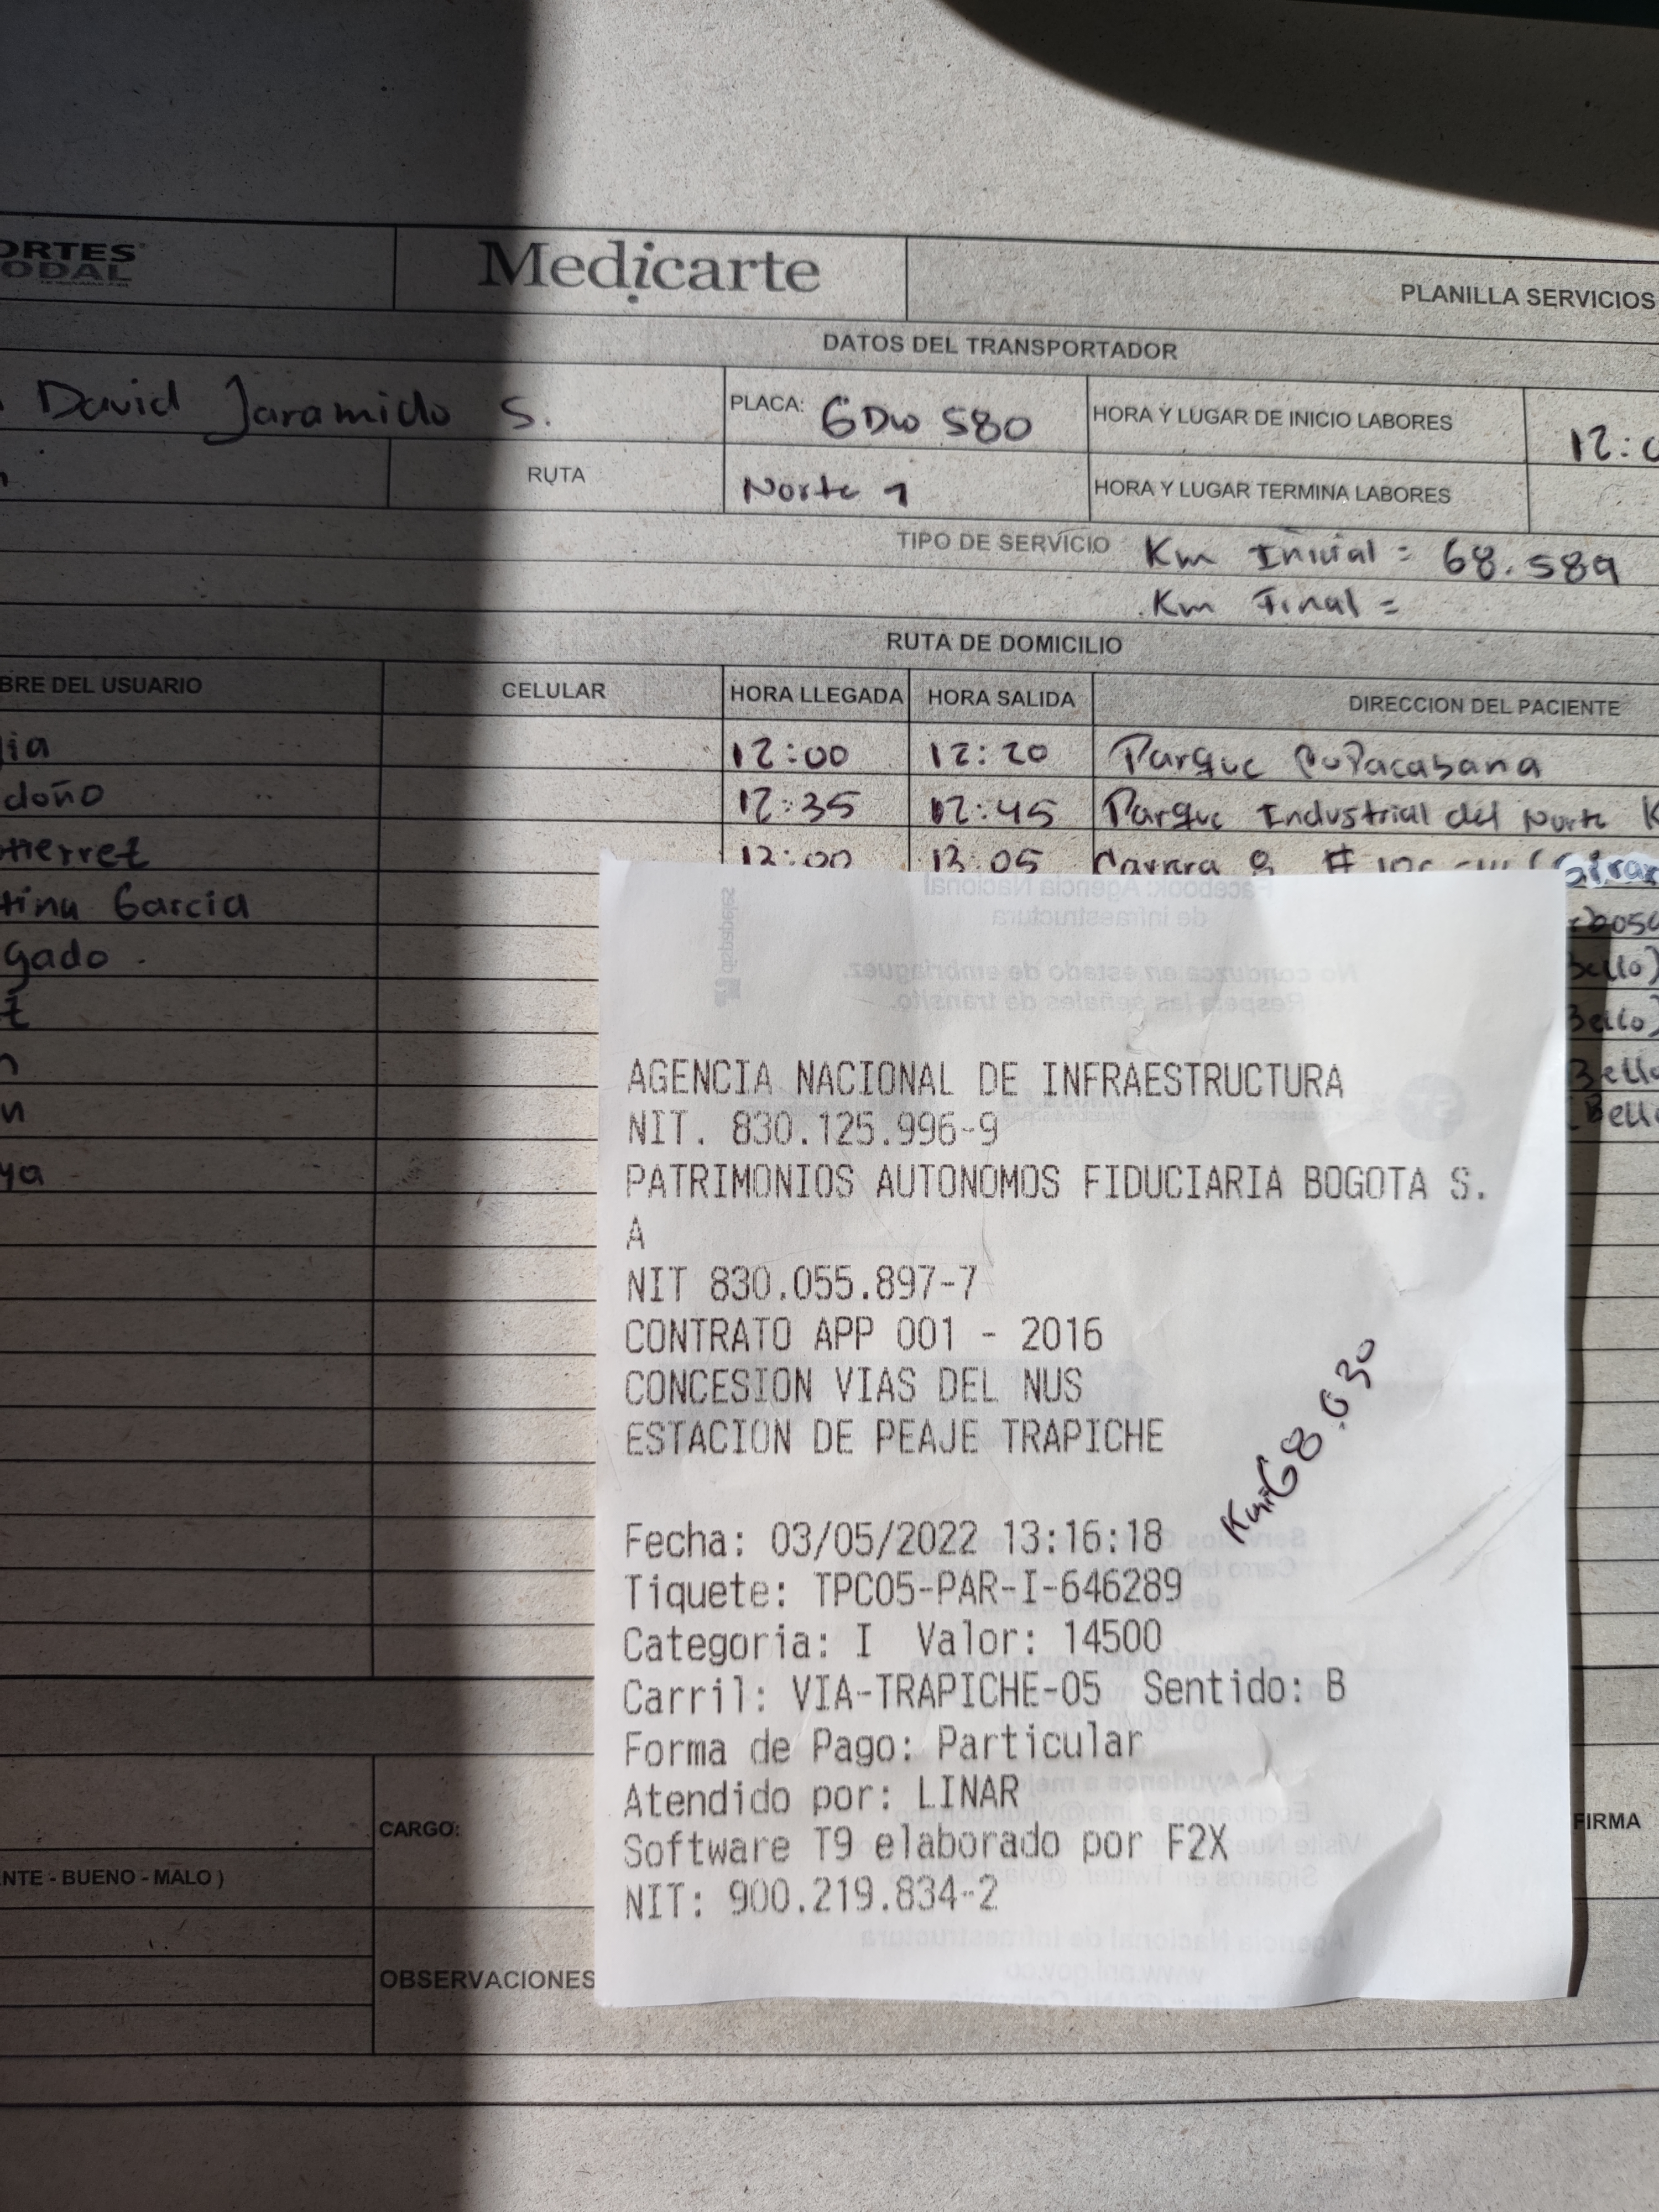 ORTES
ODAL
Medicarte
PLANILLA SERVICIOS
DATOS DEL TRANSPORTADOR
David Jaramillo S.
PLACA: GDW 580
HORA Y LUGAR DE INICIO LABORES
12:0
RUTA
Norte 1
HORA Y LUGAR TERMINA LABORES
TIPO DE SERVICIO
Km Inicial = 68.589
Km Final =
RUTA DE DOMICILIO
BRE DEL USUARIO CELULAR HORA LLEGADA HORA SALIDA DIRECCION DEL PACIENTE
12:00 12:20 Parque Copacabana
doño 12:35 12:45 Parque Industrial del Norte K
tierrez 13:00 13:05
tina Garcia
gado
ya
Bello)
Bello)
Facebook: Agencia Nacional
de Infraestructura
No conduzca en estado de embriaguez.
Respeta las señales de tránsito.
AGENCIA NACIONAL DE INFRAESTRUCTURA
NIT. 830.125.996-9
PATRIMONIOS AUTONOMOS FIDUCIARIA BOGOTA S.
A
NIT 830.055.897-7
CONTRATO APP 001 - 2016
CONCESION VIAS DEL NUS
ESTACION DE PEAJE TRAPICHE
Km 68.630
Fecha: 03/05/2022 13:16:18
Tiquete: TPC05-PAR-I-646289
Categoria: I Valor: 14500
Carril: VIA-TRAPICHE-05 Sentido: B
Forma de Pago: Particular
Atendido por: LINAR
Software T9 elaborado por F2X
NIT: 900.219.834-2
Agencia Nacional de Infraestructura
www.ani.gov.co
CARGO:
FIRMA
NTE - BUENO - MALO )
OBSERVACIONES